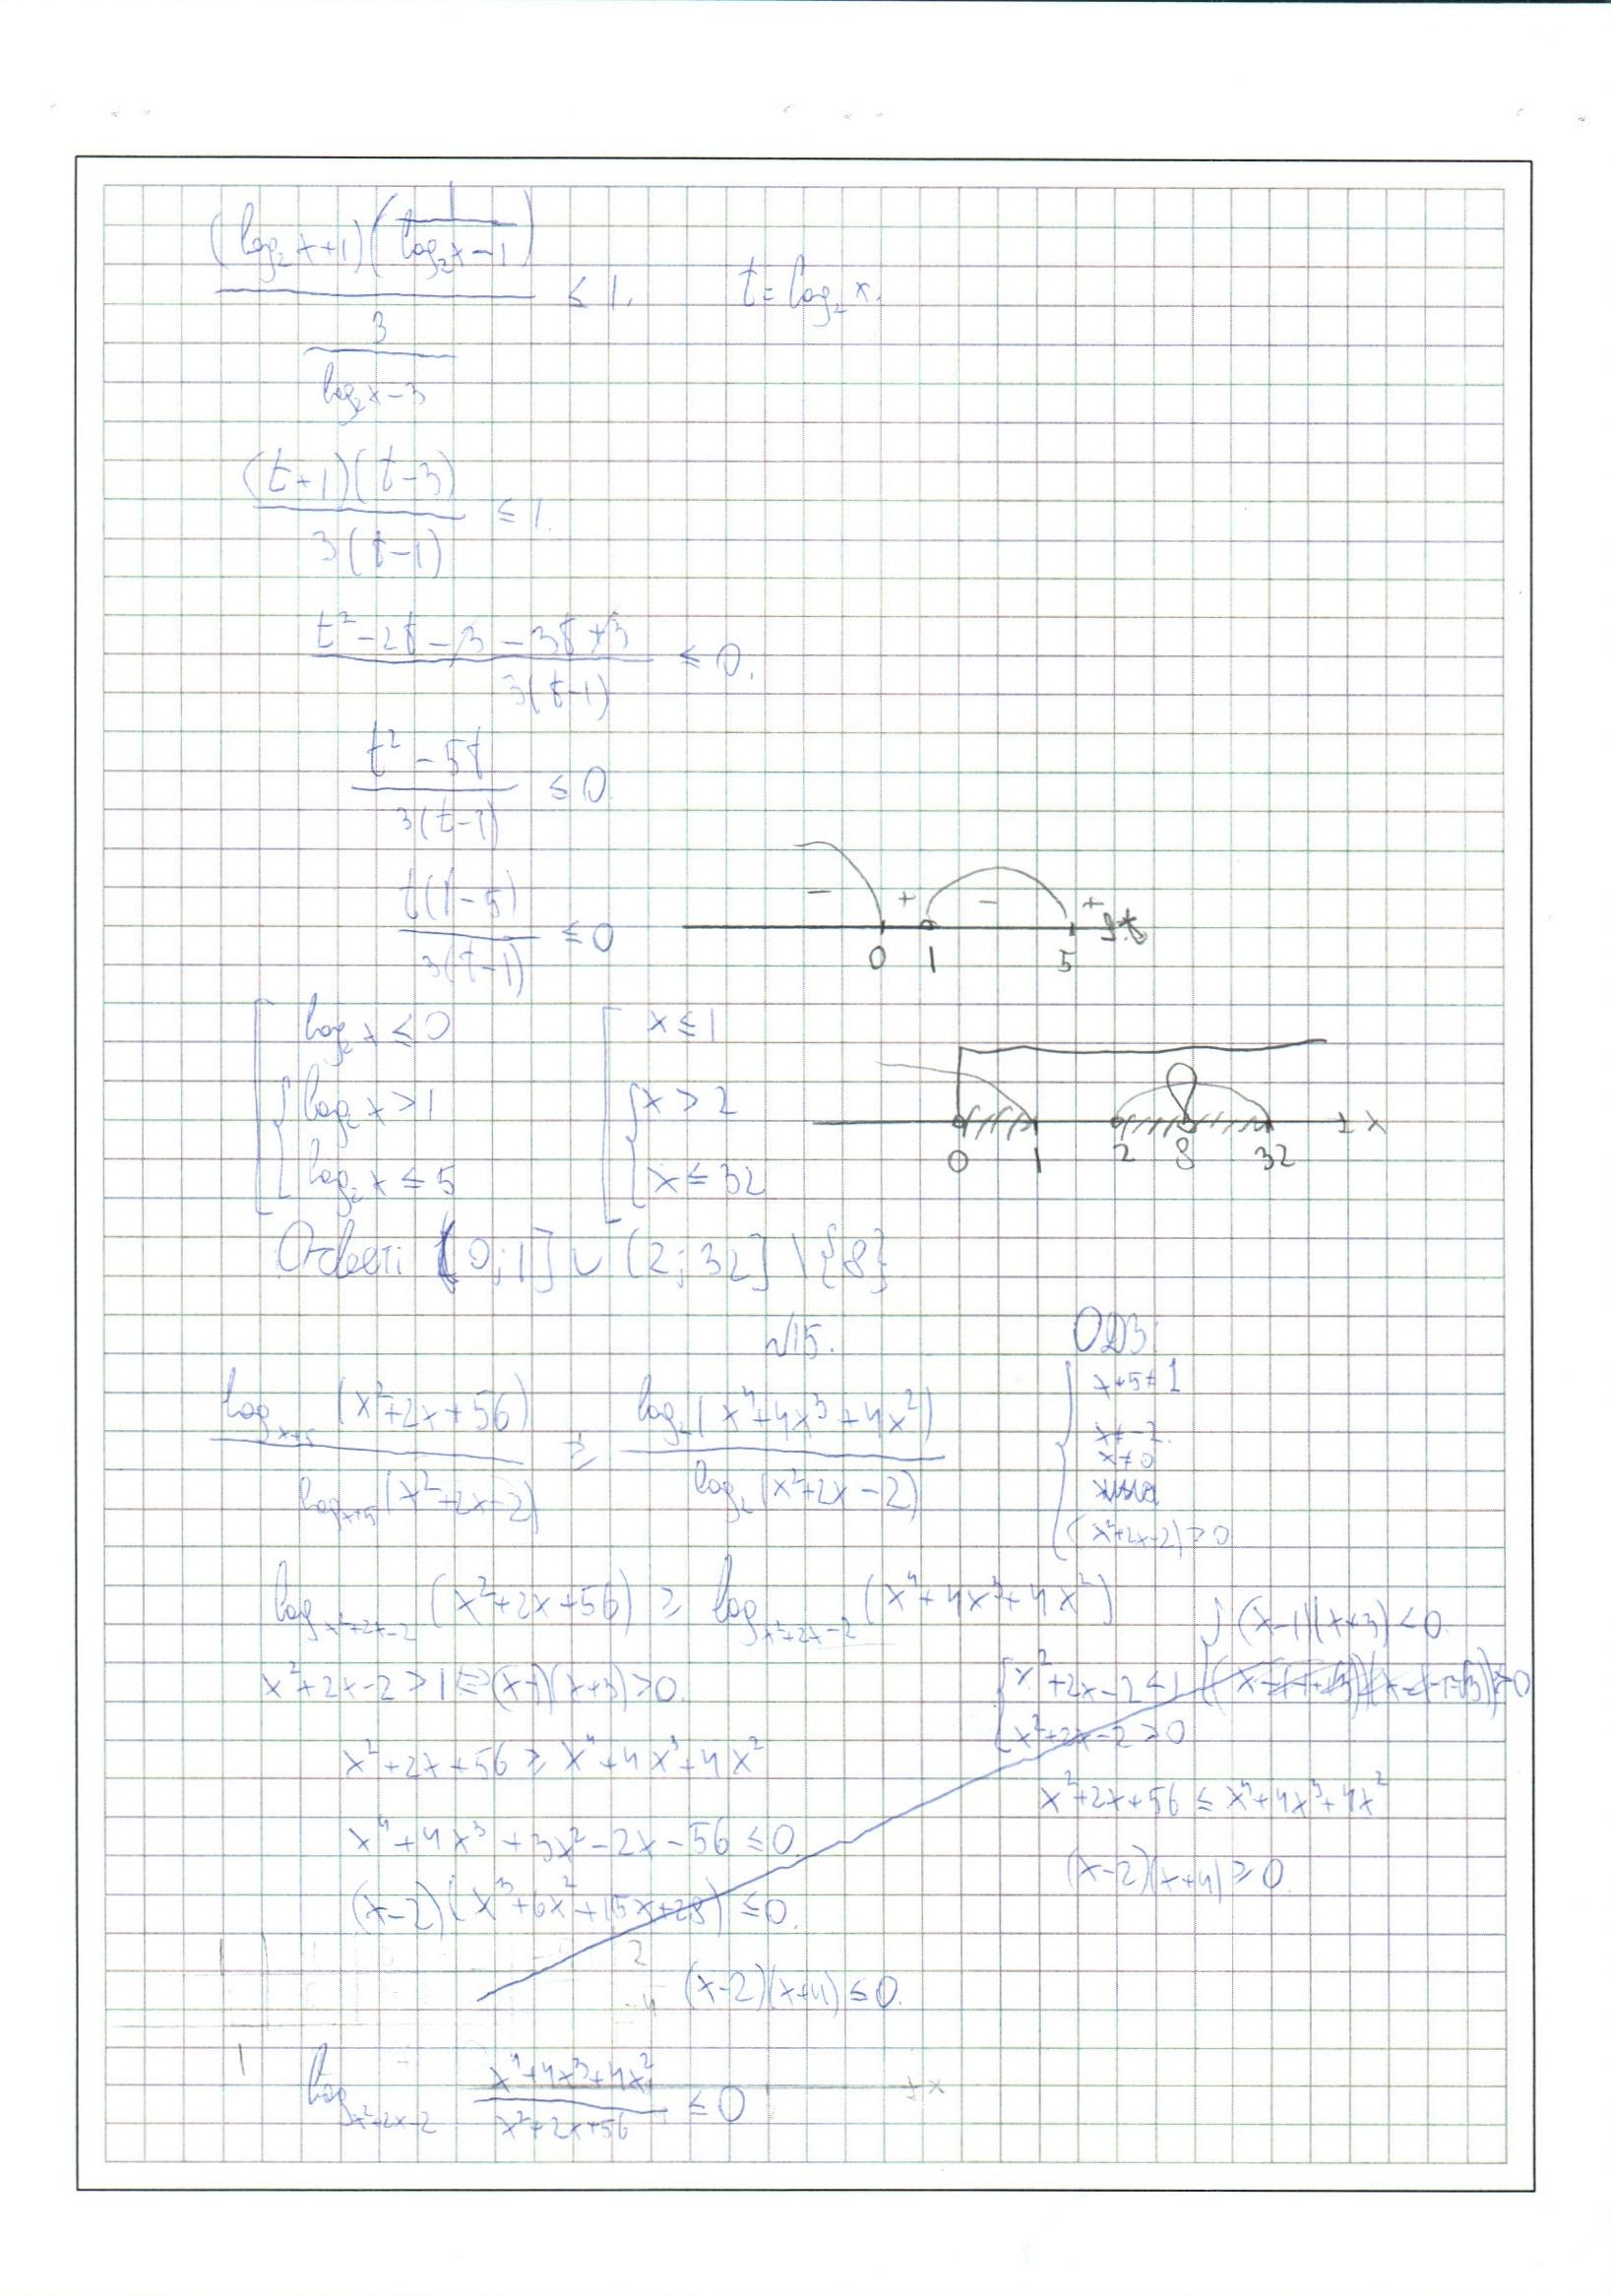 (log₂x+1)(1/(log₂x−1)) / (3/(log₂x−3)) ≤ 1. t = log₂x.
(t+1)(t−3) / 3(t−1) ≤ 1.
t²−2t−3−3t+3 / 3(t−1) ≤ 0.
t²−5t / 3(t−1) ≤ 0.
t(t−5) / 3(t−1) ≤ 0
− + − +
0 1 5
log₂x ≤ 0 x ≤ 1
log₂x > 1 x > 2
log₂x ≤ 5 x ≤ 32
0 1 2 8 32 x
Ответ: (0;1] ∪ (2;32] \ {8}
√15. ОДЗ:
log_{x+5}(x²+2x+56) / log_{x+5}(x²+2x−2) ≥ log₂(x⁴+4x³+4x²) / log₂(x²+2x−2)
x+5≠1
x≠−2.
x≠0
(x²+2x−2)>0
log_{x²+2x−2}(x²+2x+56) ≥ log_{x²+2x−2}(x⁴+4x³+4x²)
x²+2x−2 > 1 ⇔ (x−1)(x+3) > 0.
x²+2x+56 ≥ x⁴+4x³+4x²
x⁴+4x³+3x²−2x−56 ≤ 0.
(x−2)(x³+6x²+15x+28) ≤ 0.
2
−4
(x−2)(x+4) ≤ 0.
(x−1)(x+3) < 0
x²+2x−2 < 1
x²+2x−2 > 0
x²+2x+56 ≤ x⁴+4x³+4x²
(x−2)(x+4) ≥ 0.
log_{x²+2x−2} x⁴+4x³+4x² / x²+2x+56 ≤ 0
x